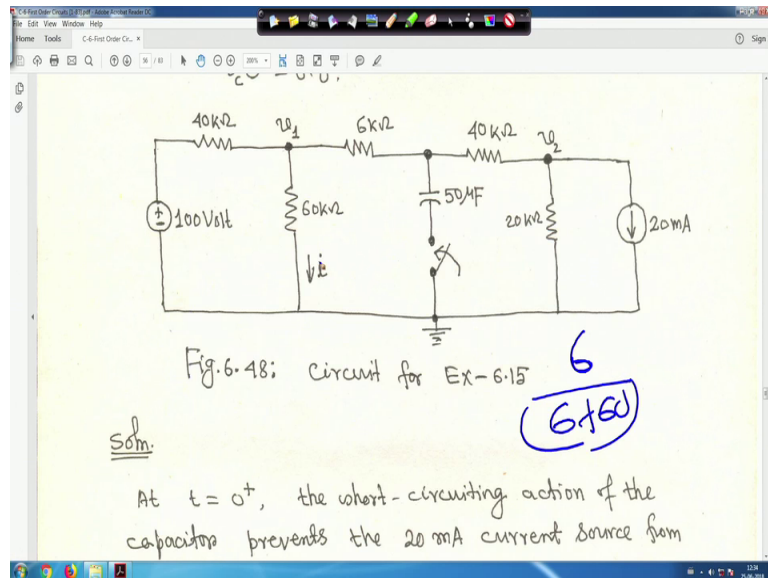 C-6-First Order Circuits (1-83).pdf - Adobe Acrobat Reader DC
File Edit View Window Help
Home Tools C-6-First Order Cir... × Sign
56 / 83 200%
40kΩ v1 6kΩ 40kΩ v2
100Volt 60kΩ 50μF 20kΩ 20mA
i
Fig.6.48: Circuit for Ex-6.15
6
6+60
Soln.
At t = 0+, the short-circuiting action of the
capacitor prevents the 20 mA current source from
12:34